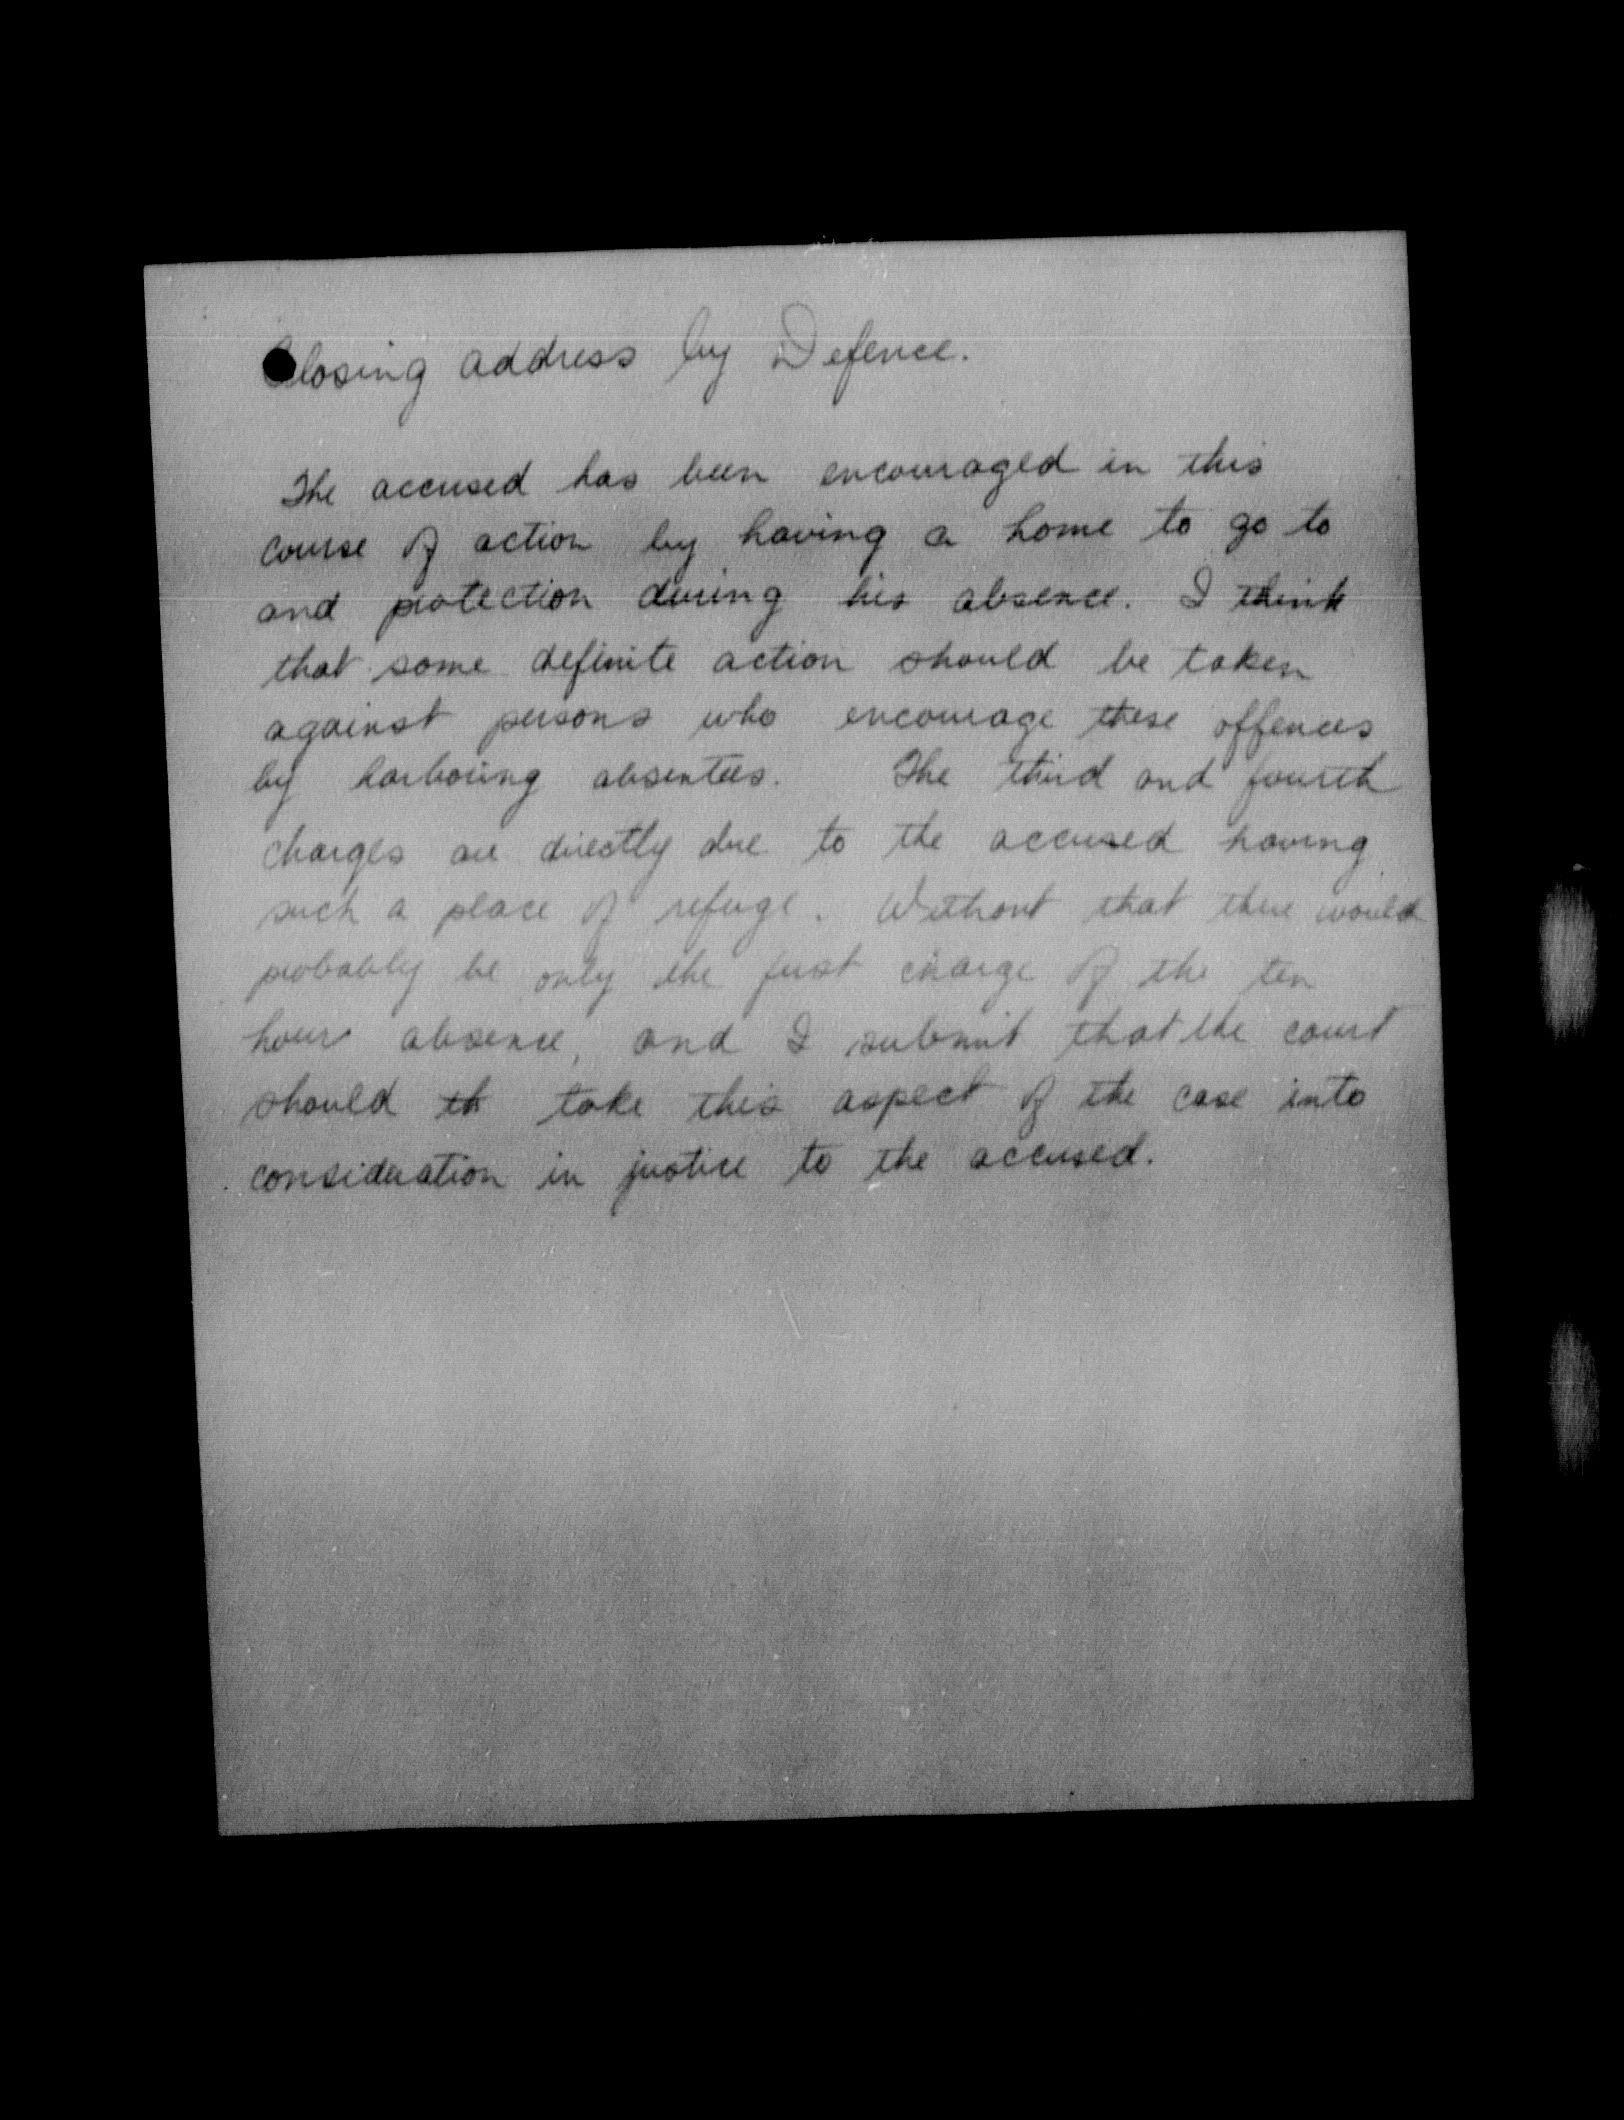 Closing address by Defence.
The accused has been encouraged in this
course of action by having a home to go to
and protection during his absence. I think
that some definite action should be taken
against persons who encourage these offences
by harboring absentees. The third and fourth
charges are directly due to the accused having
such a place of refuge. Without that there would
probably be only the first charge of the ten
hour absence, and I submit that the court
should th take this aspect of the case into
consideration in justice to the accused.